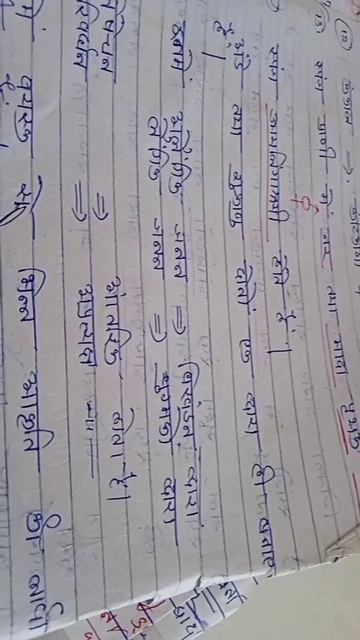 (12) कंकाल ⇒
(13) स्पंज प्राणी में नर तथा मादा पृथक
स्पंज उभयलिंगाश्री होते हैं।
अंडे तथा शुक्राणु दोनों एक द्वारा ही बनाए
हैं।
इनमें अलैंगिक जनन ⇒ विखंडन द्वारा
लैंगिक जनन ⇒ युग्मकों द्वारा
निषेचन ⇒ आंतरिक होता है।
परिवर्धन ⇒ अप्रत्यक्ष
में वयस्क से भिन्न आकृति की लार्वा